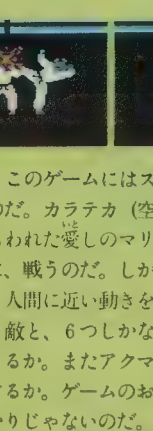 このゲームにはス
のだ。カラテカ（空
われた愛しのマリ
に、戦うのだ。しか
人間に近い動きを
敵と、6つしかな
るか。またアクマ
するか。ゲームのお
かりじゃないのだ。